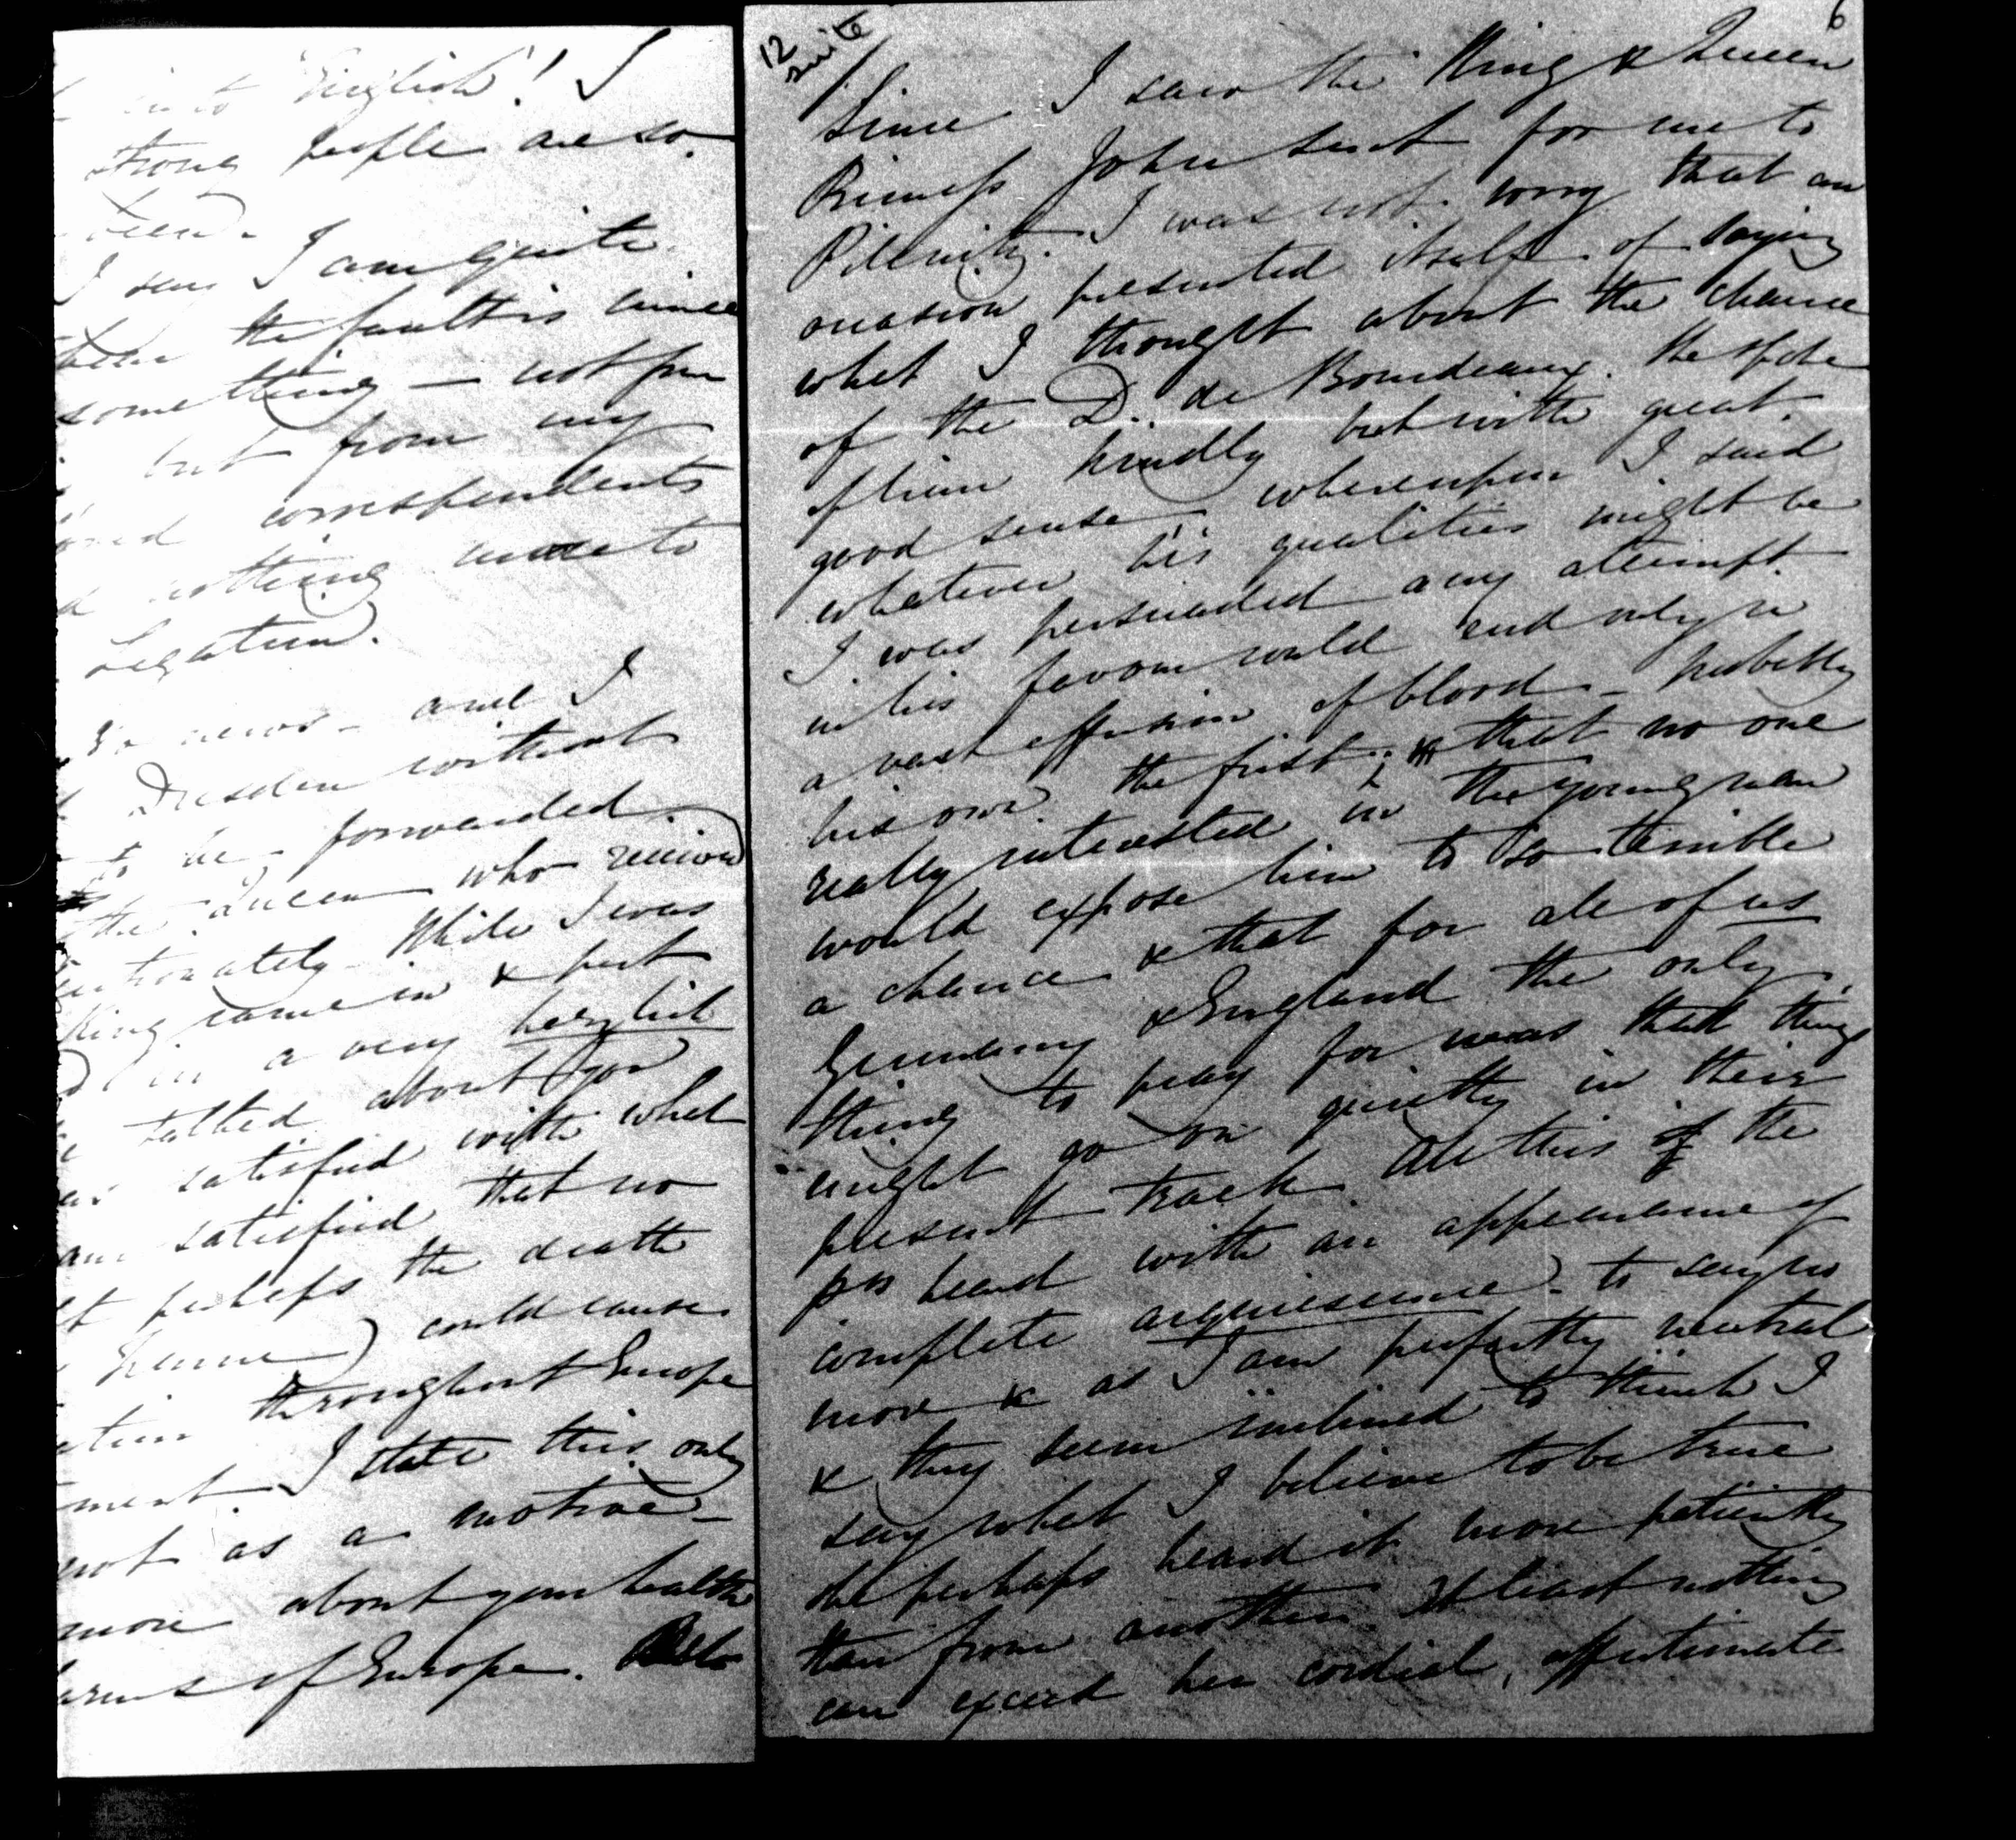 into English! I
strong people are so
been.
I say I am quite
the fault is mine
something — not from
but from my
correspondents
nothing more to
Legation.
no news – and I
Dresden without
to be forwarded.
the Queen who received
affectionately – While I was
King came in & put
in a very herzlich
talked about you
as satisfied with what
am satisfied that no
perhaps the death
) could cause
throughout Europe
ment. I state this only
not as a motive –
more about your health
of Europe.
12
suite
6
Since I saw the King & Queen
Princess John sent for me to
Pillnitz. I was not sorry that an
occasion presented itself of saying
what I thought about the chance
of the D. de Bourdeaux. She spoke
of him kindly but with great
good sense – whereupon I said
whatever his qualities might be
I was persuaded any attempt
in his favour would end only in
a vast effusion of blood – probably
his own the first; & that no one
really interested in the young man
would expose him to so terrible
a chance & that for all of us
Germany & England the only
thing to pray for was that things
might go on quietly in their
present track. All this the
pss heard with an appearance of
complete acquiescence – to say no
more & as I am perfectly neutral
& they seem inclined to think I
say what I believe to be true
she perhaps heard it more patiently
than from another. At least nothing
can exceed her cordial, affectionate